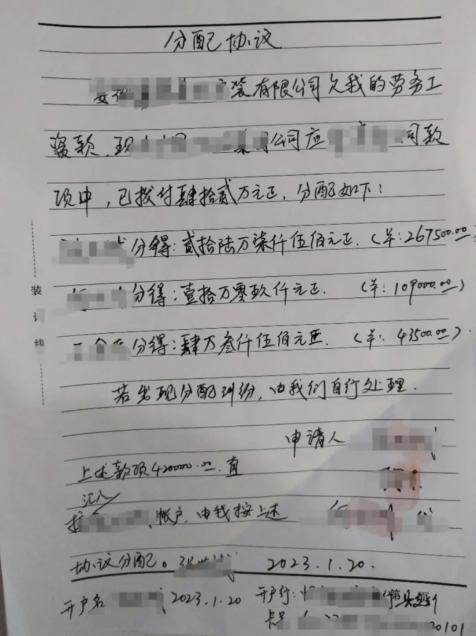 分配协议
装有限公司欠我的劳务工
资款，现 公司应 司款
项中，已拨付肆拾贰万元正，分配如下：
分得：贰拾陆万柒仟伍佰元正.（￥：267500.00）
分得：壹拾万零玖仟元正.（￥：109000.00）
分得：肆万叁仟伍佰元正.（￥：43500.00）
若发现分配纠纷，由我们自行处理.
申请人
上述款项420000.00.直
汇入
帐户，由我按上述
协议分配。 2023.1.20.
开户名 2023.1.20 开户行：
卡号 0101
装订线